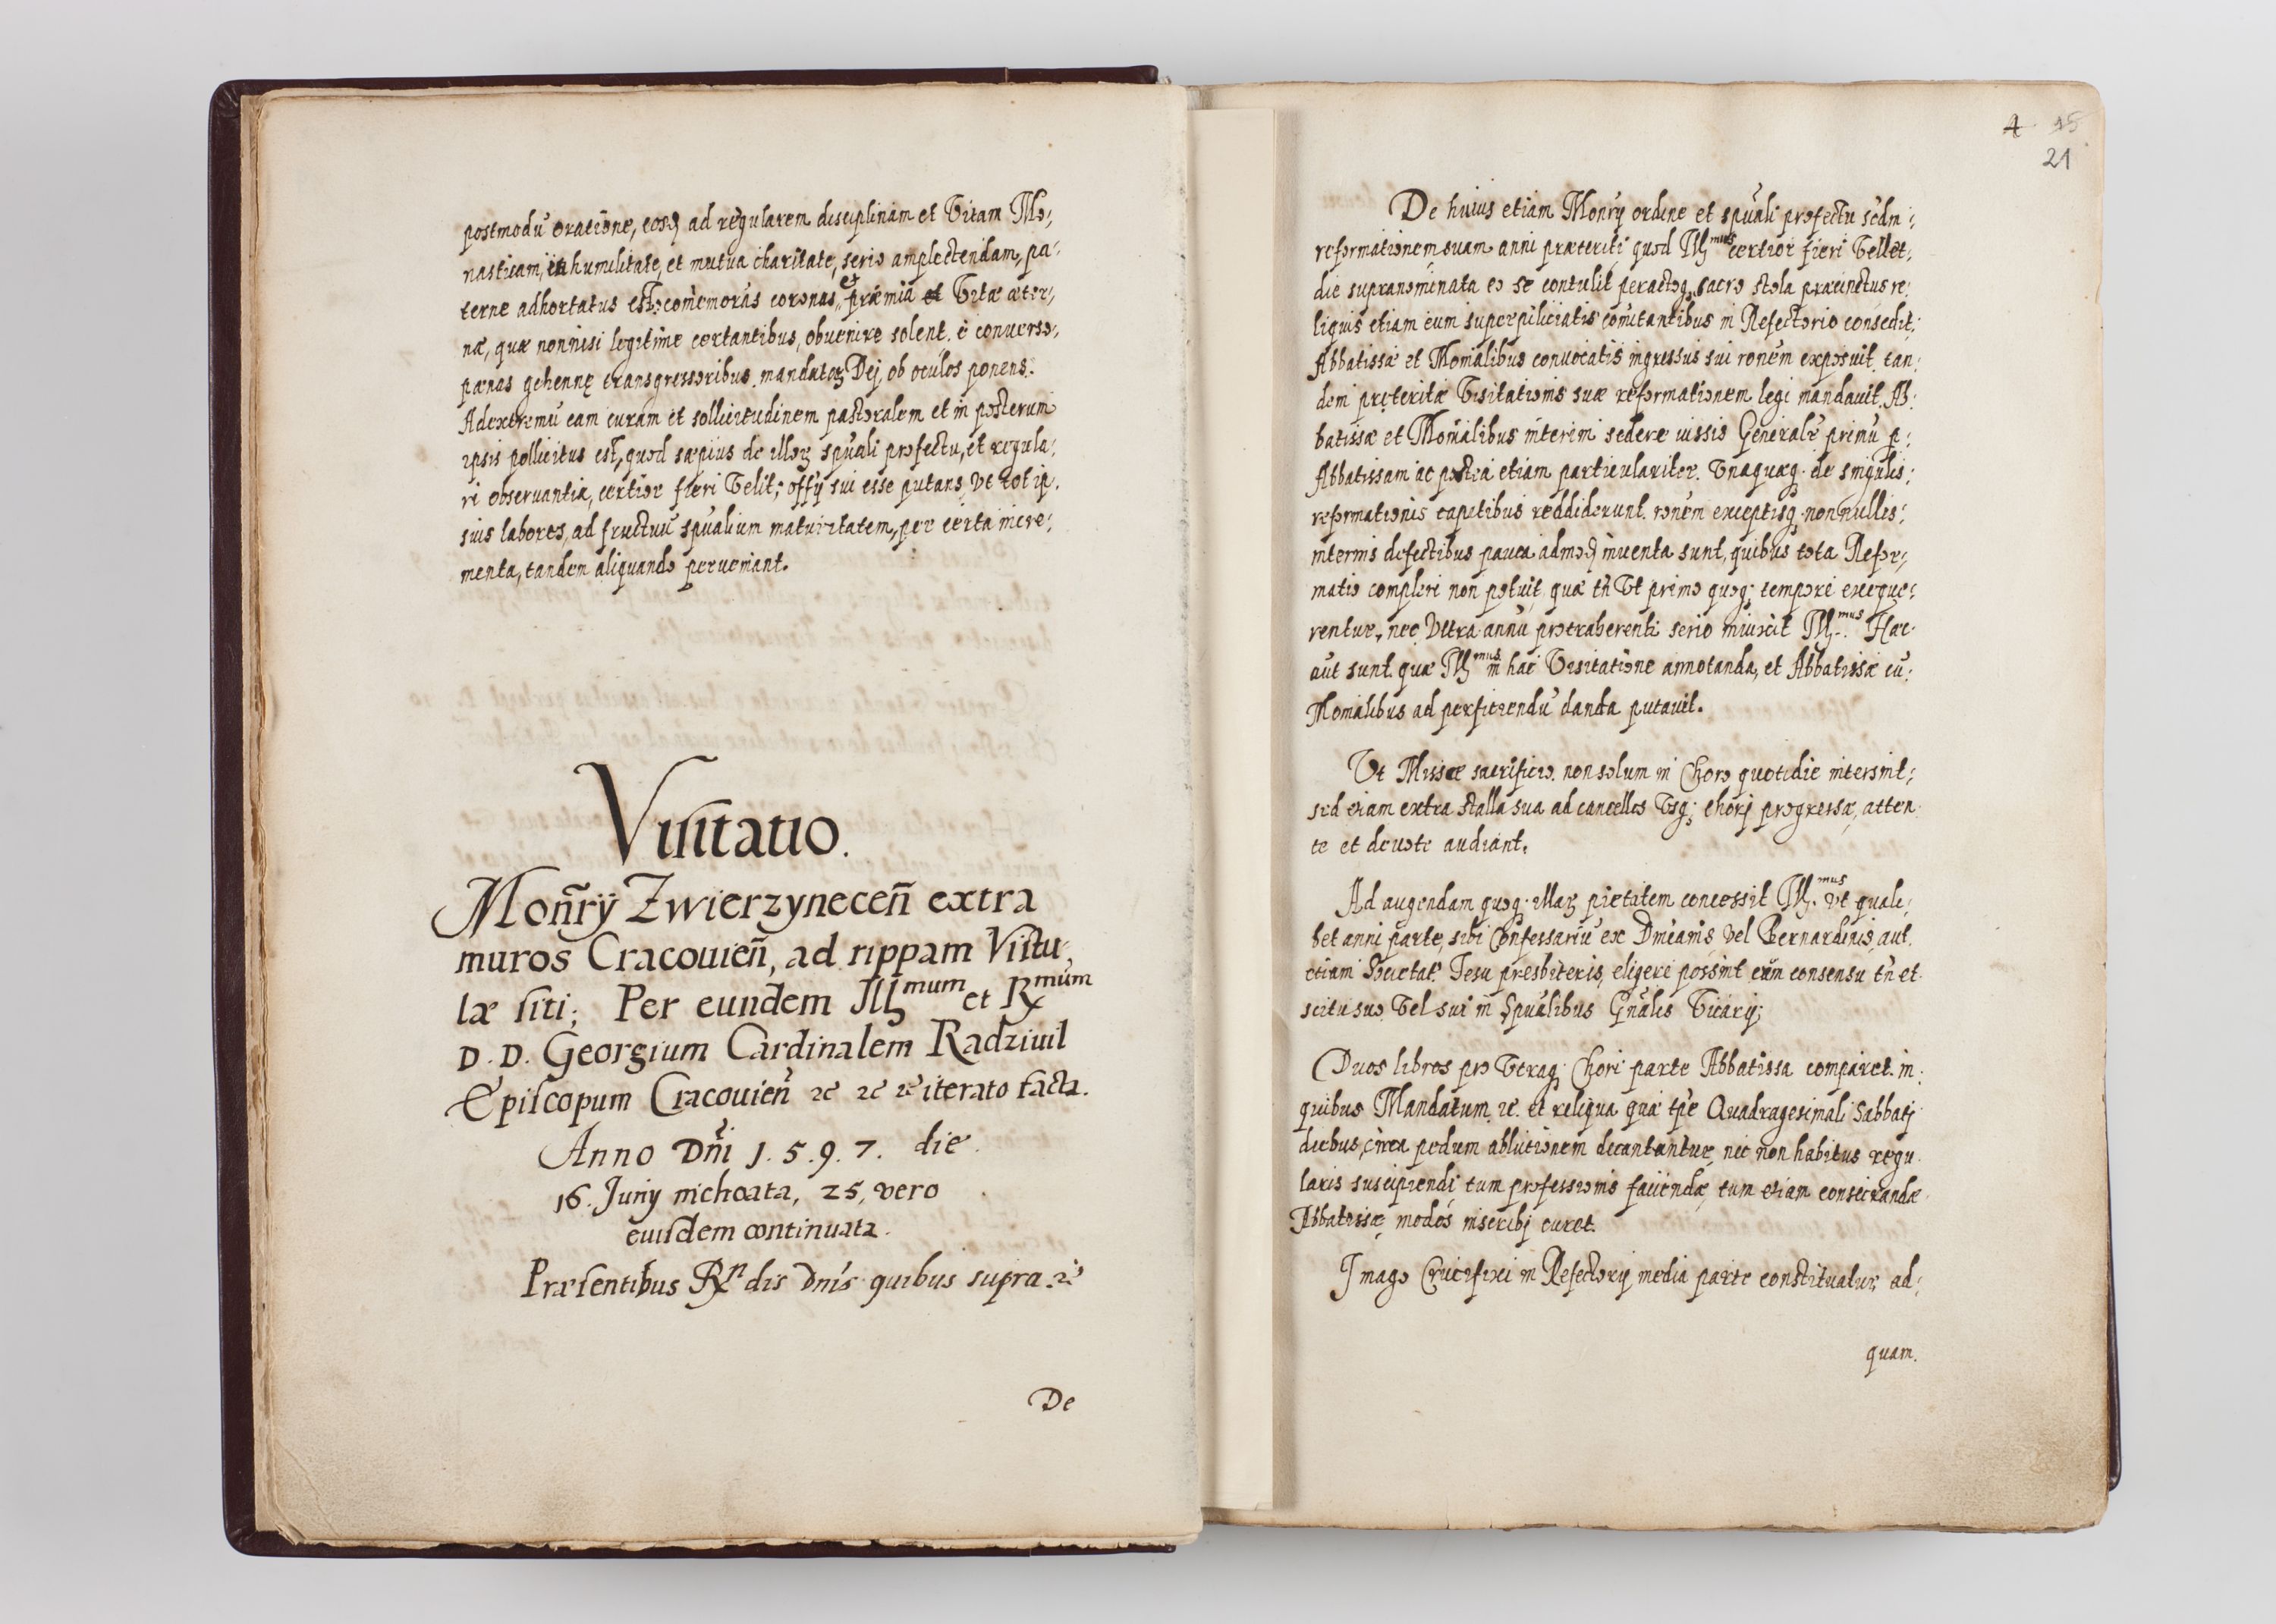 postmodū oratiōne, eosq ad regularem disciplinam et Vitam Mo,
nasticam, in humilitate, et mutua charitate, serio amplectendam, pa,
terne adhortatus est: comemorās coronas, et præmia Vitæ æter,
næ, quæ nonnisi legitime certantibus, obuenire solent. è conuerso,
pænas gehennę transgressoribus mandatoꝝ Dej, ob oculos ponens.
Ad extremū eam curam et sollicitudinem pastoralem et in posterum
ipsis pollicitus est, quod sæpius de illoꝝ spūali profectu, et regula,
ri obseruantia, certior fieri Velit; offÿ sui esse putans, Vt tot ip,
sius labores, ad fructuū spūalium maturitatem, per certa incre,
menta, tandem aliquando perueniant.
Visitatio.
Moñrÿ Zwierzyneceñ extra
muros Cracouieñ, ad rippam Vistu,
læ siti; Per eundem Illmum et Rmum
D. D. Georgium Cardinalem Radziuil
Episcopum Cracouieñ ꝛc ꝛc ꝛc iterato facta.
Anno Dñi 1. 5. 9. 7. die
16. Junÿ inchoata, 25, vero
eiusdem continuata.
Præsentibus Rndis Dnis quibus supra ꝛc
De
4 15
21
De huius etiam Monrÿ ordine et spūali profectu secdm
reformationem suam anni præteriti quod Illmus certior fieri Vellet,
die supranominata eo se contulit peractoq sacro stola præcinctus re,
liquis etiam eum superpiliciatis comitantibus in Refectorio consedit,
Abbatissæ et Monialibus conuocatis ingressus sui ronem exposuit tan,
dem pręteritæ Visitationis suæ reformationem legi mandauit. Ab,
batissæ et Monialibus interim sedere iussis Generale primū p,
Abbatissam ac postea etiam particulariter. Vnaquæq de singulis,
reformationis capitibus reddiderunt ronem exceptisq nonnullis,
internis defectibus pauca admoq inuenta sunt, quibus tota Refor,
matio compleri non potuit, quæ tñ Vt primo quoq tempore exeque,
rentur, nec Vltra annū protraherentr serio iniunxit Illmus Hæc
aūt sunt quæ Illmus in hac Visitatione annotanda, et Abbatissæ cū,
Monialibus ad perficiendū danda putauit.
Vt Missæ sacrificio non solum in Choro quotidie intersint,
sed etiam extra stalla sua ad cancellos Vsq; chorj progressæ, atten
te et deuote audiant.
Ad augendam quoq illaꝝ pietatem concessit Illmus Vt quali,
bet anni parte, sibi Confessariū ex Dnicanis Vel Bernardinis, aut
etiam Societat Iesu presbiteris, eligere possint cum consensu tñ et
scitu suo Vel sui in Spūalibus Gñalis Vicarÿ;
Duos libros pro Vtraq Chori parte Abbatissa comparet in
quibus Mandatum ꝛc. et reliqua quæ tpe Quadragesimali Sabbatj
diebus, circa pedum ablutionem decantantur, nec non habitus regu
laris suscipiendi tum professionis faciendæ, tum etiam consecrandæ
Abbatissæ, modos inscribj curet.
Imago Crucifixi in Refectorÿ media parte constituatur, ad,
quam.